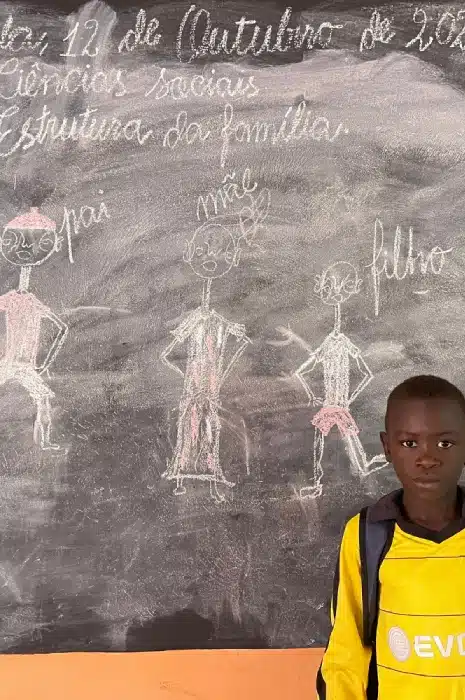 12 de Outubro de 202
Ciências sociais
Estrutura da família.
pai
mãe
filho
EVO